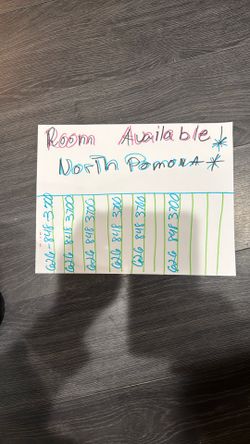 Room Available!
* North Pomona *
626-848-3700
626 848 3700
626 848 3700
626 848 3700
626 848 3700
626 848 3700